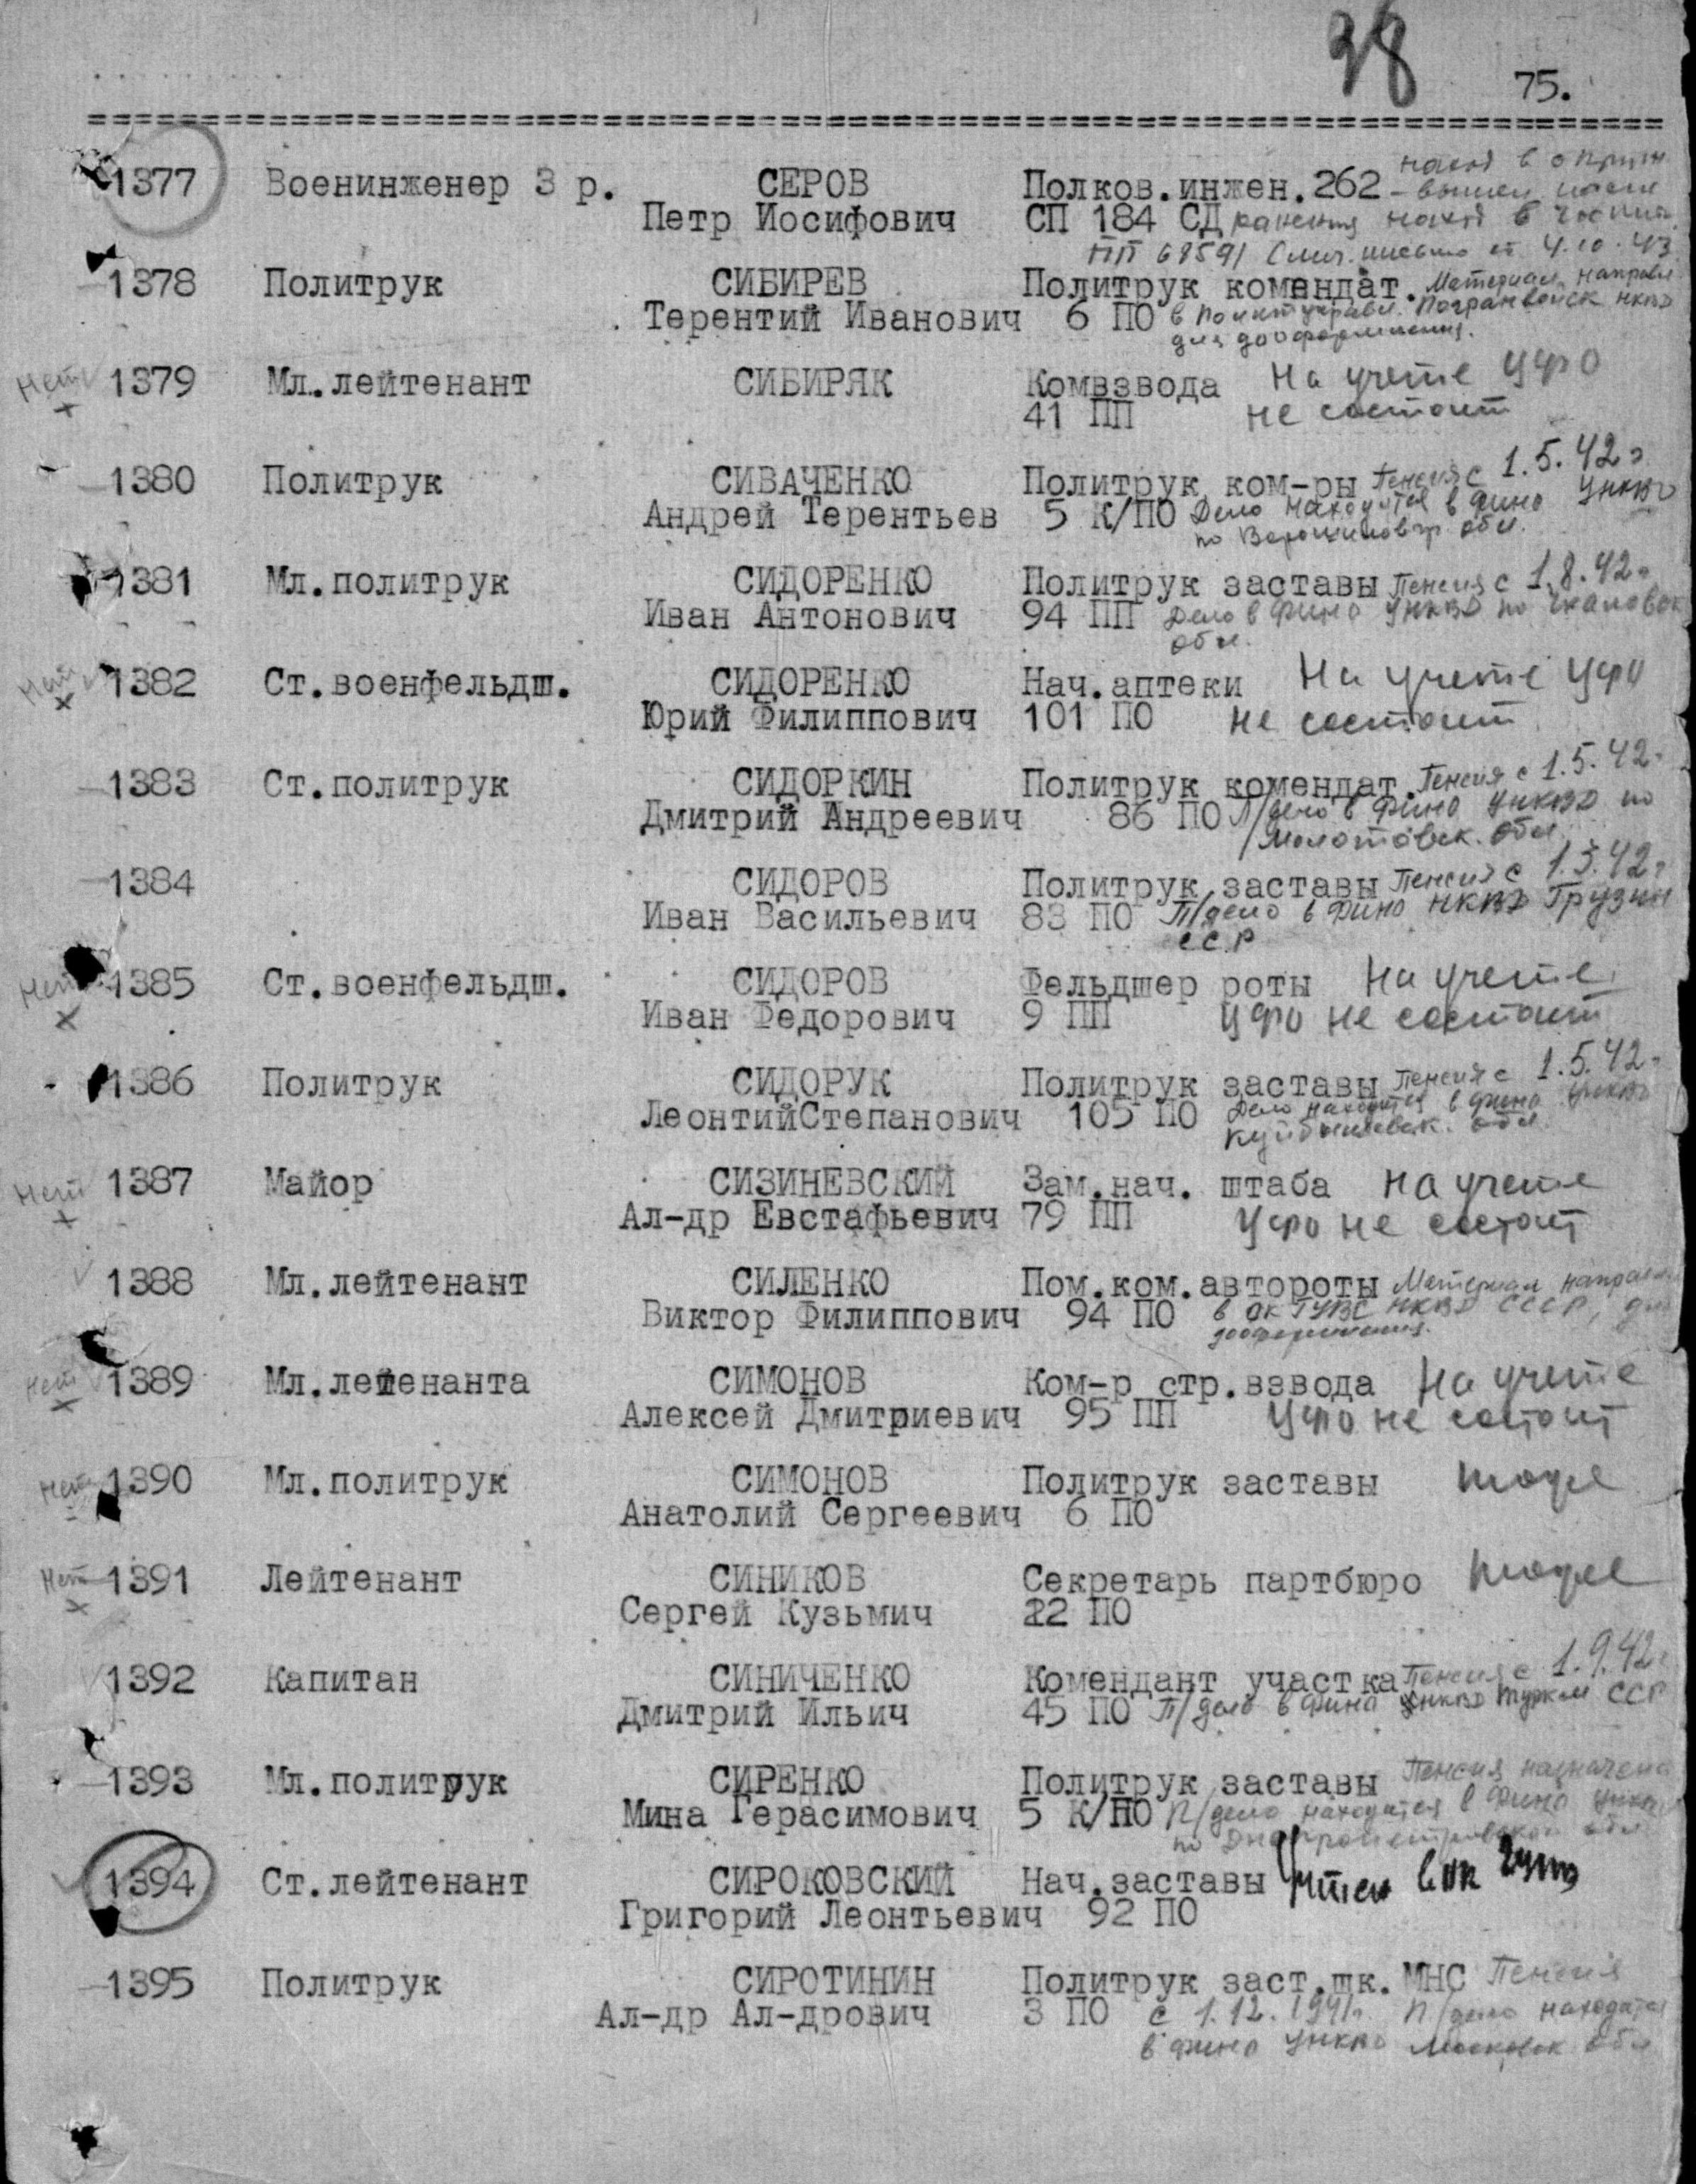 38
75.
1377 Военинженер 3 р. СЕРОВ Полков.инжен.262 - наход в окруж
Петр Иосифович СП 184 СД ранения наход в
ПП 68591 письмо от 4.10.43
1378 Политрук СИБИРЕВ Политрук комендат. Материал направл
Терентий Иванович 6 ПО в Политуправл. Погранвойск НКВД
для дооформления.
Нет 1379 Мл.лейтенант СИБИРЯК Комвзвода На учете ЦФПО
41 ПП не состоит
1380 Политрук СИВАЧЕНКО Политрук ком-ры Пенсия с 1.5.42г
Андрей Терентьев 5 К/ПО Дело находится в ФИНО УНКВД
по Ворошиловгр. обл.
1381 Мл.политрук СИДОРЕНКО Политрук заставы Пенсия с 1.8.42г
Иван Антонович 94 ПП Дело в ФИНО УНКВД по Чкаловск
обл.
Нет 1382 Ст.военфельдш. СИДОРЕНКО Нач.аптеки На учете
Юрий Филиппович 101 ПО не состоит
1383 Ст.политрук СИДОРКИН Политрук комендат. Пенсия с 1.5.42г
Дмитрий Андреевич 86 ПО П/дело в ФИНО УНКВД по
Молотовск. обл.
1384 СИДОРОВ Политрук заставы Пенсия с 1.5.42г
Иван Васильевич 83 ПО П/дело в ФИНО НКВД Грузин
ССР
Нет 1385 Ст.военфельдш. СИДОРОВ Фельдшер роты На учете
Иван Федорович 9 ПП не состоит
1386 Политрук СИДОРУК Политрук заставы Пенсия с 1.5.42г
ЛеонтийСтепанович 105 ПО Дело находится в ФИНО УНКВД
Куйбышевск. обл.
Нет 1387 Майор СИЗИНЕВСКИЙ Зам.нач. штаба На учете
Ал-др Евстафьевич 79 ПП не состоит
1388 Мл.лейтенант СИЛЕНКО Пом.ком.автороты Материал направл
Виктор Филиппович 94 ПО в ОК ГУВС НКВД СССР, для
дооформления.
Нет 1389 Мл.лейтенанта СИМОНОВ Ком-р стр.взвода На учете
Алексей Дмитриевич 95 ПП не состоит
Нет 1390 Мл.политрук СИМОНОВ Политрук заставы тоже
Анатолий Сергеевич 6 ПО
Нет 1391 Лейтенант СИНИКОВ Секретарь партбюро тоже
Сергей Кузьмич 22 ПО
1392 Капитан СИНИЧЕНКО Комендант участка Пенсия с 1.9.42г
Дмитрий Ильич 45 ПО П/дело в ФИНО НКВД Туркм ССР
1393 Мл.политрук СИРЕНКО Политрук заставы Пенсия назначена
Мина Герасимович 5 К/ПО П/дело находится в ФИНО УНКВД
по Днепропетровской обл
1394 Ст.лейтенант СИРОКОВСКИЙ Нач.заставы Учтен в ОК
Григорий Леонтьевич 92 ПО
1395 Политрук СИРОТИНИН Политрук заст.шк. МНС Пенсия
Ал-др Ал-дрович 3 ПО с 1.12.1941г. П/дело находится
в ФИНО УНКВД Московск обл